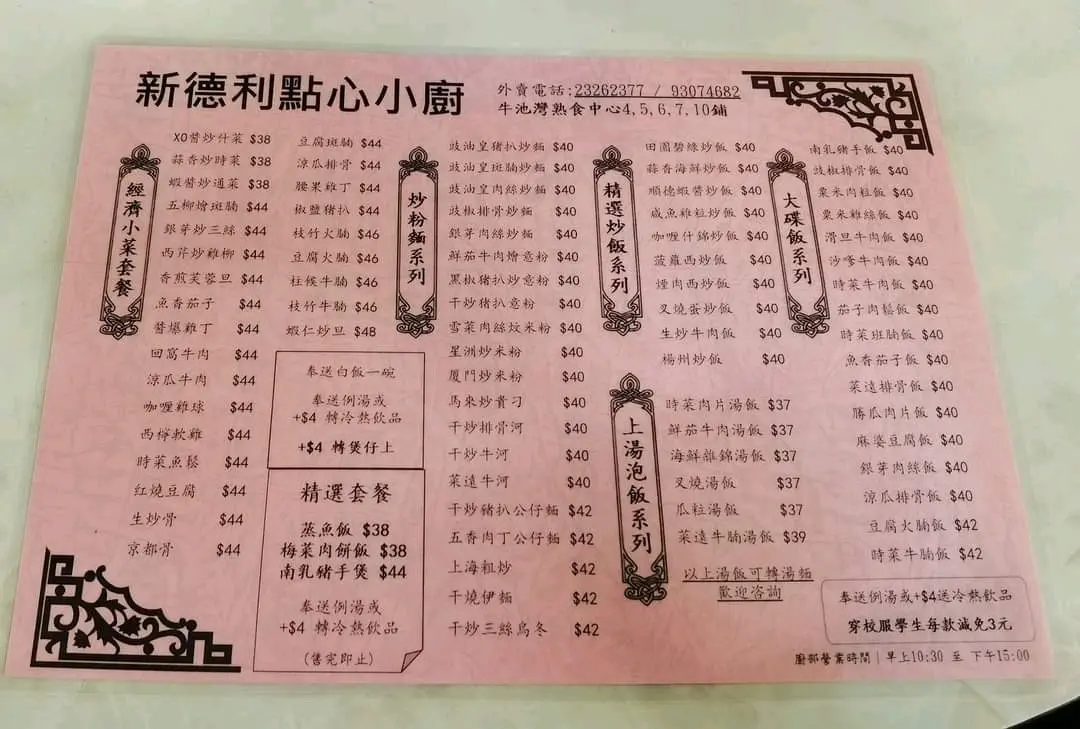 新德利點心小廚
外賣電話:23262377 / 93074682
牛池灣熟食中心4,5,6,7,10鋪
經濟小菜套餐
XO醬炒什菜 $38
蒜香炒時菜 $38
蝦醬炒通菜 $38
五柳燴斑腩 $44
銀芽炒三絲 $44
西芹炒雞柳 $44
香煎芙蓉旦 $44
魚香茄子 $44
醬爆雞丁 $44
回窩牛肉 $44
涼瓜牛肉 $44
咖喱雞球 $44
西檸軟雞 $44
時菜魚鬆 $44
紅燒豆腐 $44
生炒骨 $44
京都骨 $44
豆腐斑腩 $44
涼瓜排骨 $44
腰果雞丁 $44
椒鹽豬扒 $44
枝竹火腩 $46
豆腐火腩 $46
柱候牛腩 $46
枝竹牛腩 $46
蝦仁炒旦 $48
奉送白飯一碗
奉送例湯或
+$4 轉冷熱飲品
+$4 轉煲仔上
精選套餐
蒸魚飯 $38
梅菜肉餅飯 $38
南乳豬手煲 $44
奉送例湯或
+$4 轉冷熱飲品
(售完即止)
炒粉麵系列
豉油皇豬扒炒麵 $40
豉油皇斑腩炒麵 $40
豉油皇肉絲炒麵 $40
豉椒排骨炒麵 $40
銀芽肉絲炒麵 $40
鮮茄牛肉燴意粉 $40
黑椒豬扒炒意粉 $40
干炒豬扒意粉 $40
雪菜肉絲炆米粉 $40
星洲炒米粉 $40
厦門炒米粉 $40
馬來炒貴刁 $40
干炒排骨河 $40
干炒牛河 $40
菜遠牛河 $40
干炒豬扒公仔麵 $42
五香肉丁公仔麵 $42
上海粗炒 $42
干燒伊麵 $42
干炒三絲烏冬 $42
精選炒飯系列
田園碧綠炒飯 $40
蒜香海鮮炒飯 $40
順德蝦醬炒飯 $40
咸魚雞粒炒飯 $40
咖喱什錦炒飯 $40
菠蘿西炒飯 $40
煙肉西炒飯 $40
叉燒蛋炒飯 $40
生炒牛肉飯 $40
楊州炒飯 $40
上湯泡飯系列
時菜肉片湯飯 $37
鮮茄牛肉湯飯 $37
海鮮雜錦湯飯 $37
叉燒湯飯 $37
瓜粒湯飯 $37
菜遠牛腩湯飯 $39
以上湯飯可轉湯麵
歡迎咨詢
大碟飯系列
南乳豬手飯 $40
豉椒排骨飯 $40
粟米肉粒飯 $40
粟米雞絲飯 $40
滑旦牛肉飯 $40
沙嗲牛肉飯 $40
時菜牛肉飯 $40
茄子肉鬆飯 $40
時菜班腩飯 $40
魚香茄子飯 $40
菜遠排骨飯 $40
勝瓜肉片飯 $40
麻婆豆腐飯 $40
銀芽肉絲飯 $40
涼瓜排骨飯 $40
豆腐火腩飯 $42
時菜牛腩飯 $42
奉送例湯或+$4送冷熱飲品
穿校服學生每款減免3元
廚部營業時間 | 早上10:30 至 下午15:00